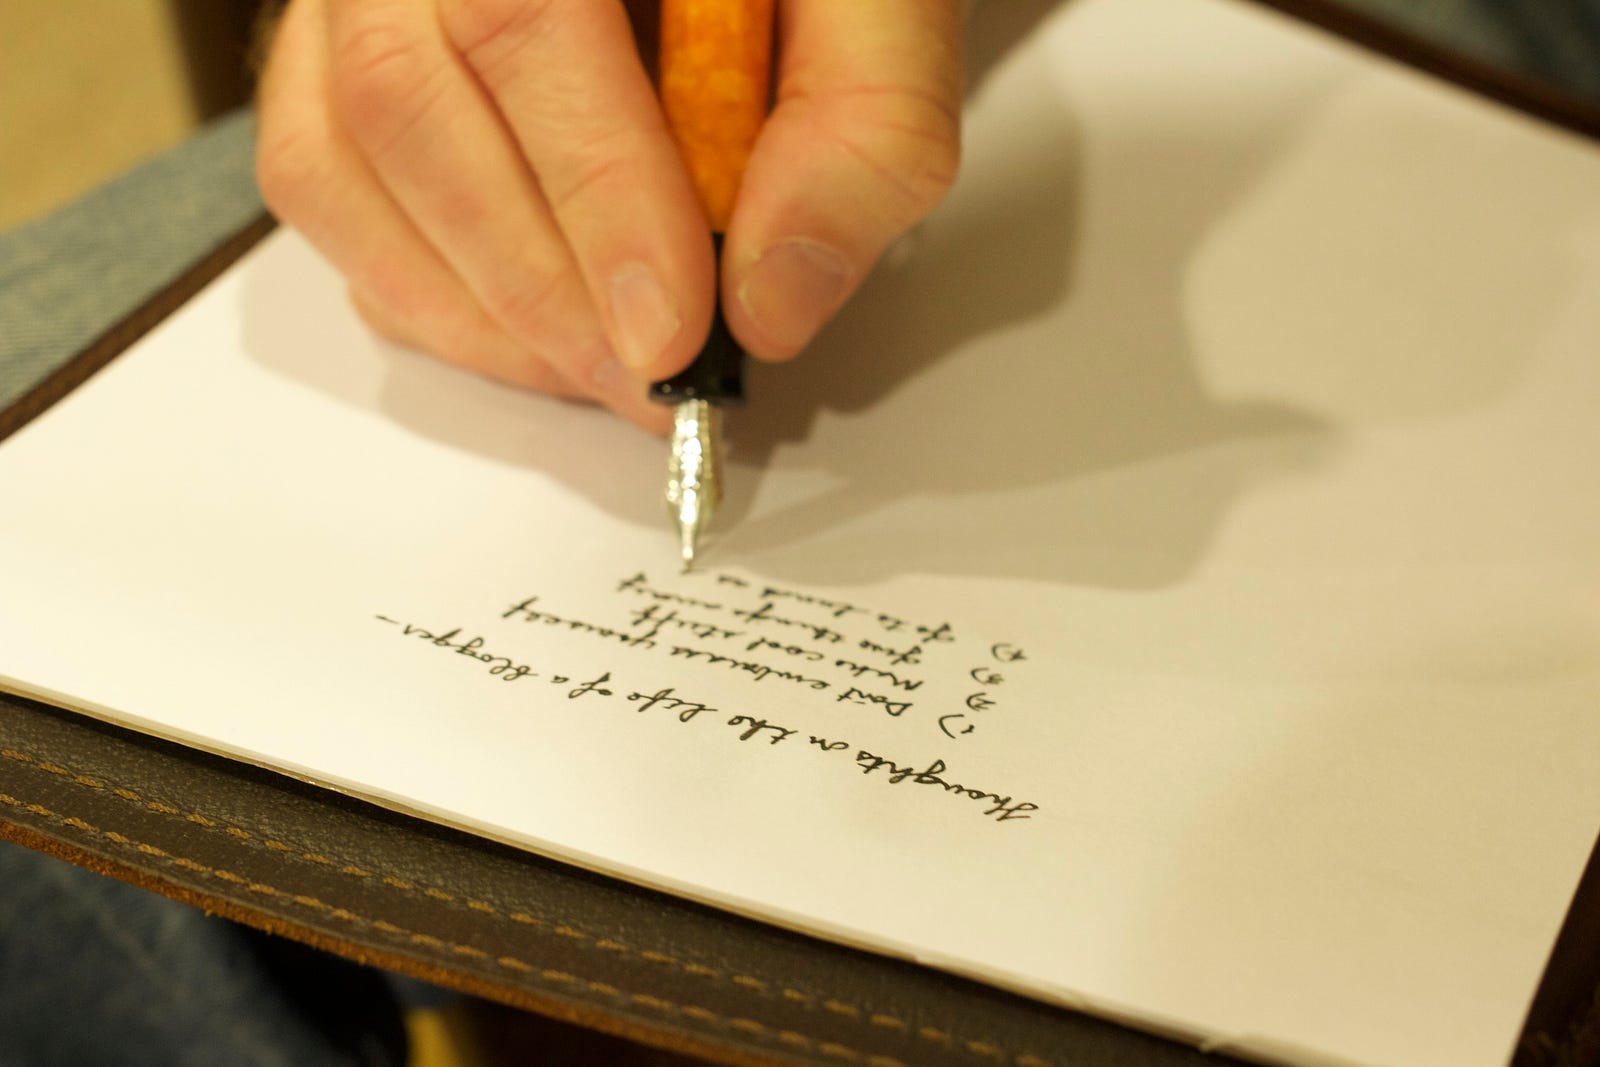 Thoughts on the life of a blogger –
1) Don't embarrass yourself
2) Make cool stuff
3) Give things away
4) Go to lunch